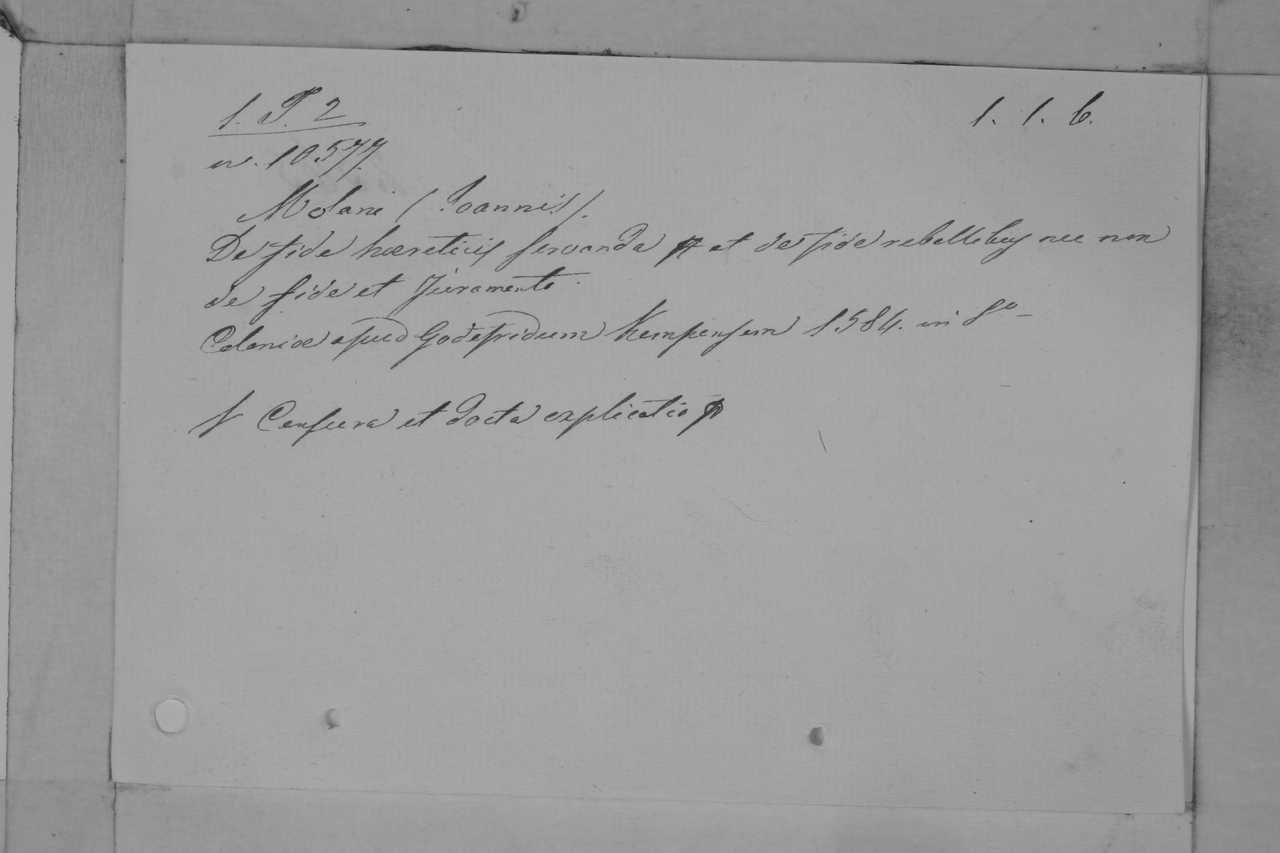 1. T. 2
n. 10577.
1. 1. 6.
Molani (Joannis).
De fide hæreticis servanda et de fide rebellibus nec non
de fide et Juramento.
Coloniæ apud Godefridum Kempensem 1584. in 8º
Censura et docta explicatio